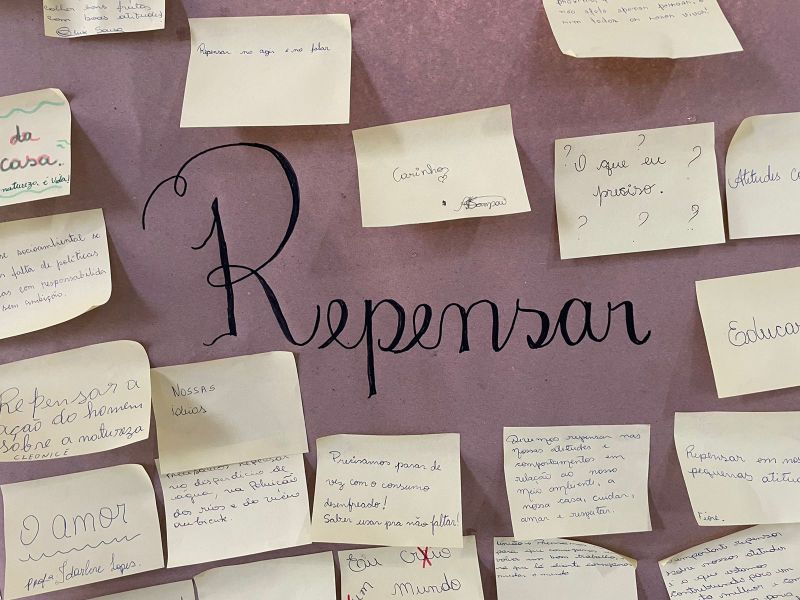 colher bons frutos
com boas atitudes!
Repensar no agir e no falar
nem todos os
da
casa.
natureza é Vida!
Carinho
O que eu
preciso.
? ? ? ? ? ?
Atitudes
socioambiental se
falta de políticas
com responsabilida
sem ambição.
Repensar
Educar
Repensar a
ação do homem
sobre a natureza
CLEONICE
Nossas
ideias
no desperdício de
água, na Poluição
dos rios e do
Precisamos parar de
vez com o consumo
desenfreado!
Saber usar pra não faltar!
Devemos repensar nas
nossas atitudes e
comportamentos em
relação ao nosso
meio ambient, a
nossa casa, cuidar,
amar e respeitar.
Repensar em nos
pequenas atitud
O AMOR
Profª Idarlene Lopes
Eu crio
um mundo
importante repensar
sobre nossas atitudes
e o que estamos
contribuindo para um